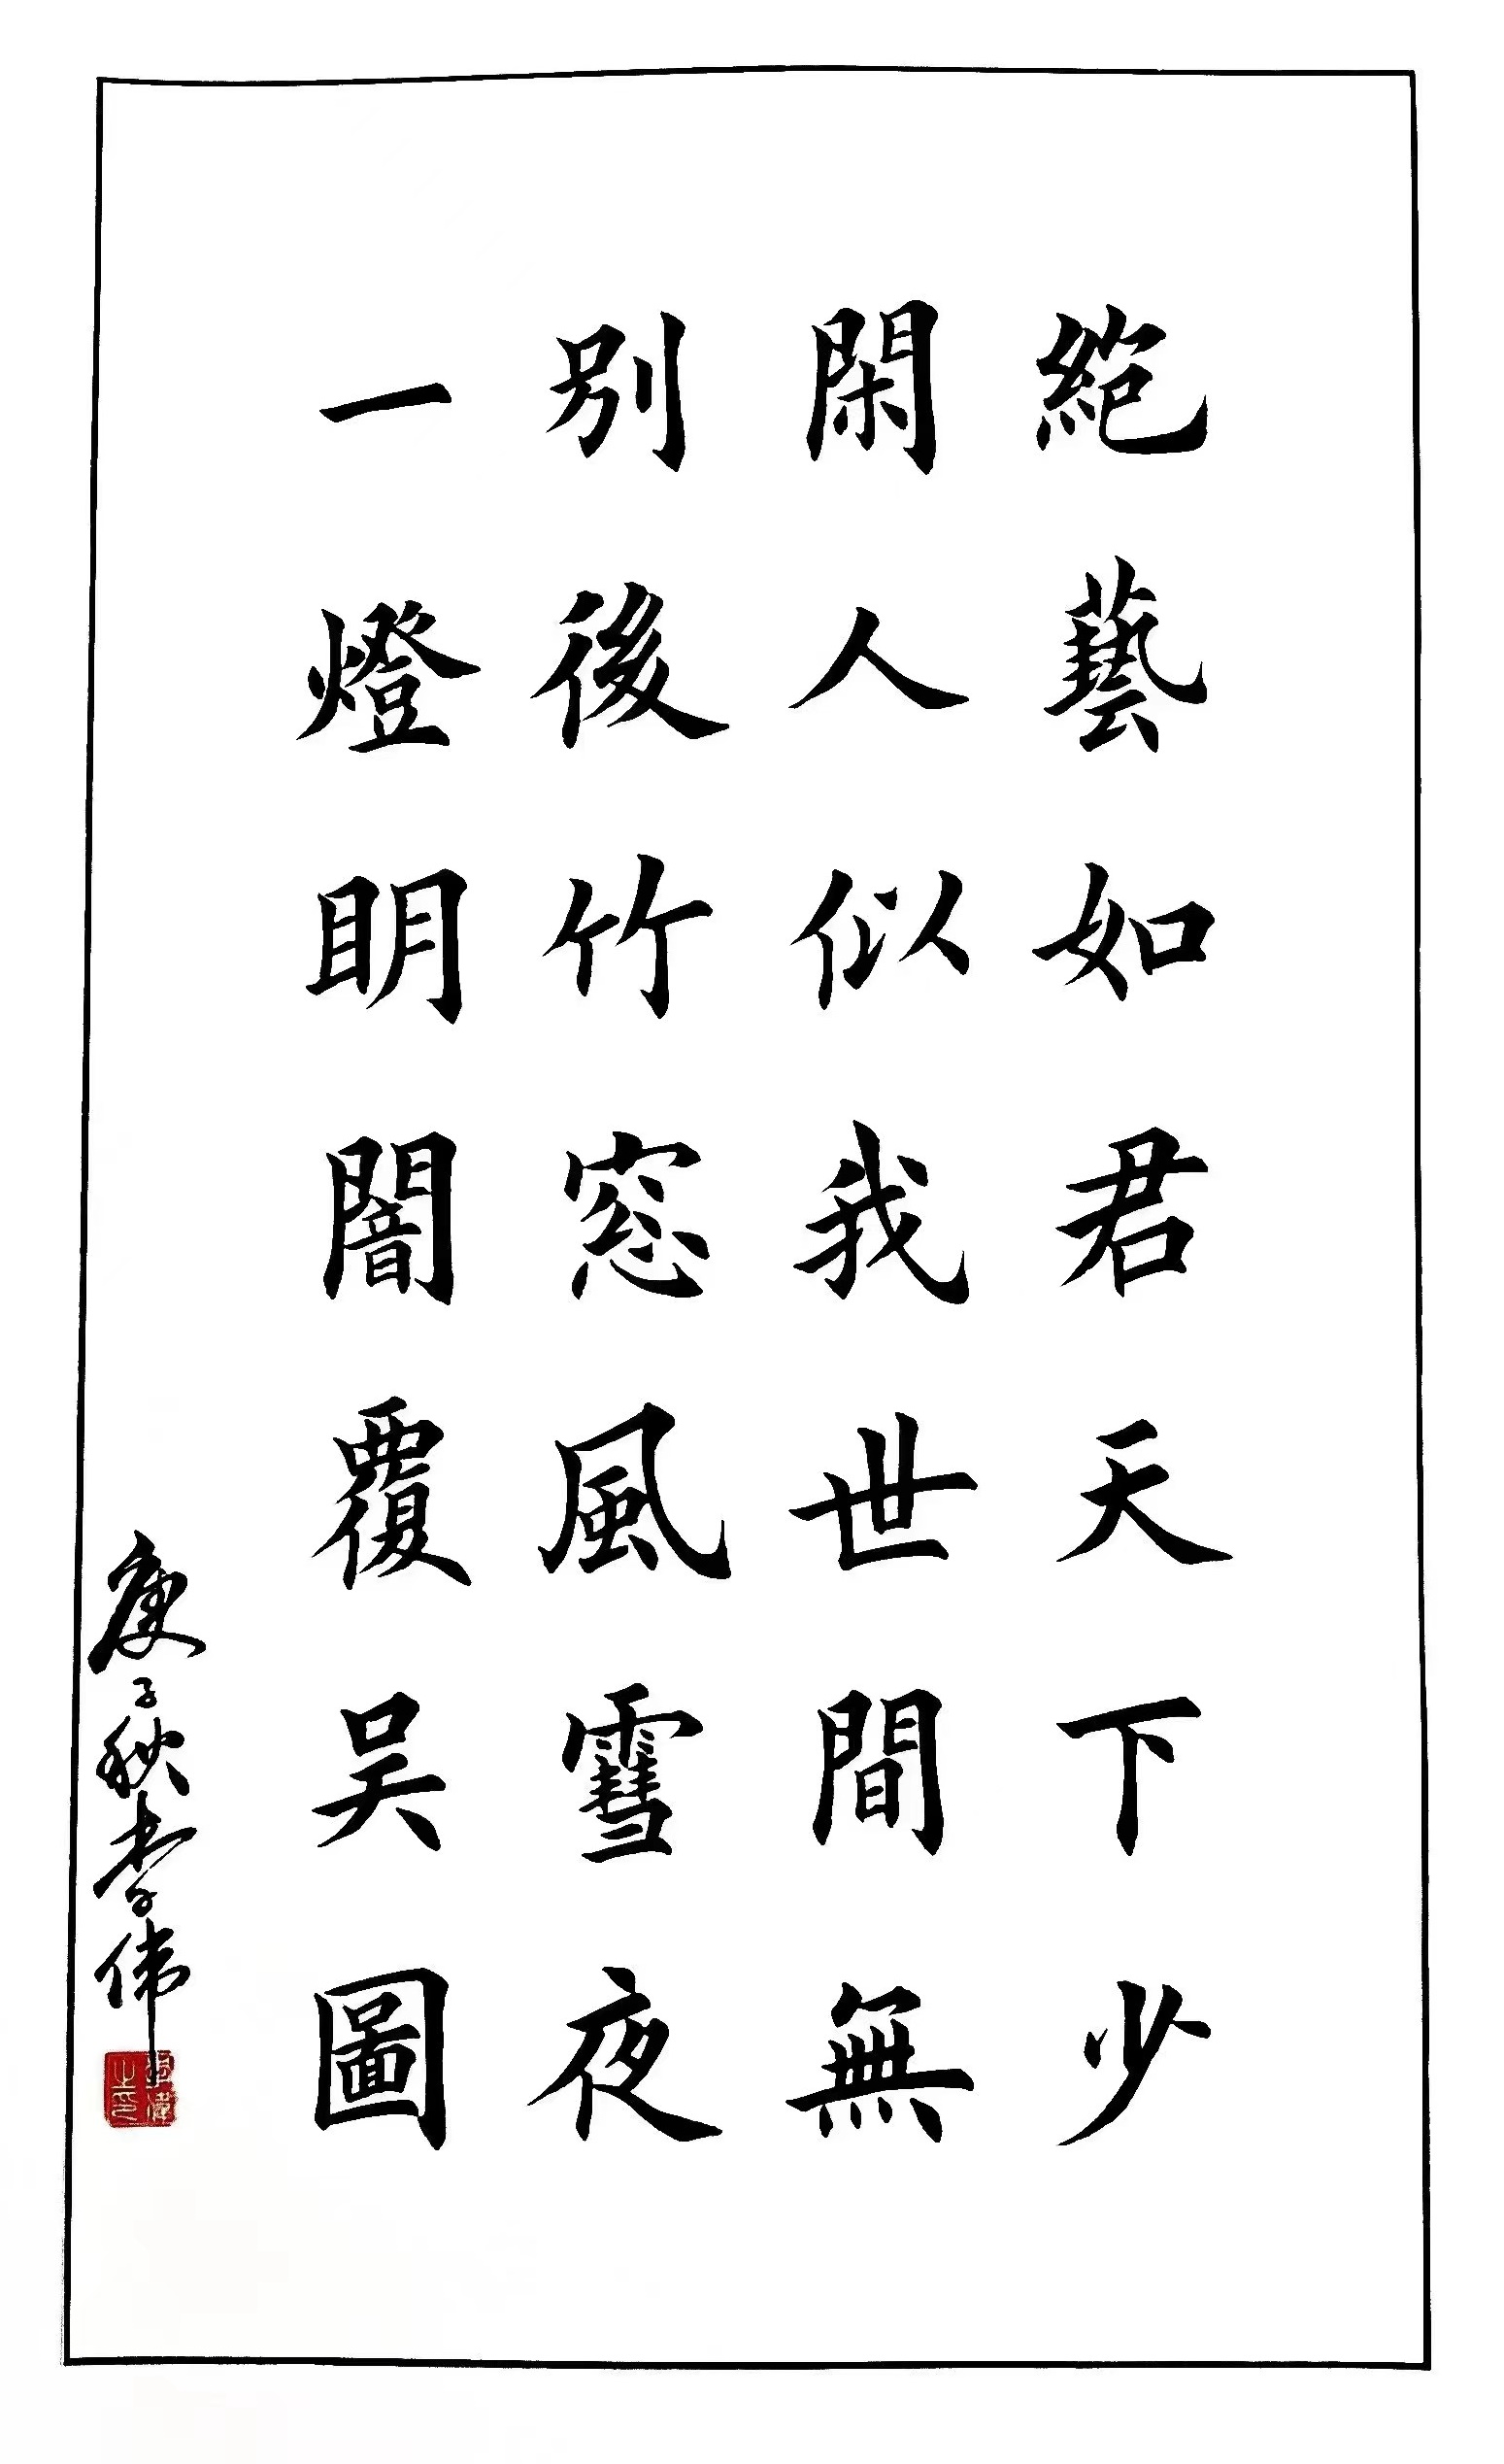 絕藝如君天下少
閑人似我世間無
別後竹窓風雪夜
一燈明闇覆吴圖
庚子秋李伟
李偉之印